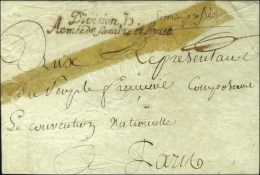 Division D.
Armée de Sambre et Meuse
service pressé
Aux Representans
Du Peuple françaiee Composans
Le convention Nationalle
a Paris